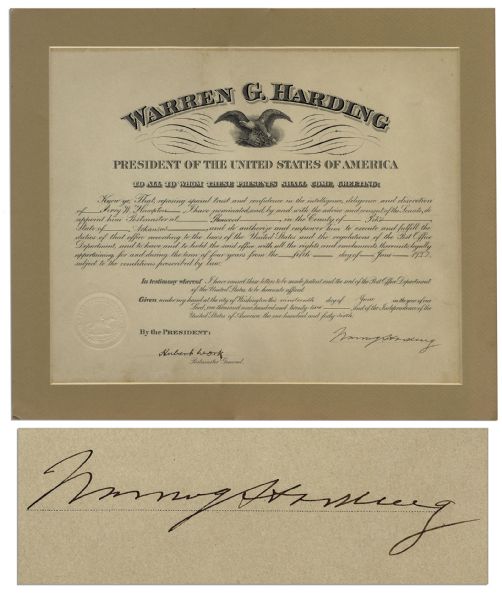 WARREN G. HARDING
PRESIDENT OF THE UNITED STATES OF AMERICA
TO ALL TO WHOM THESE PRESENTS SHALL COME, GREETING:
Know ye, That reposing special trust and confidence in the intelligence, diligence and discretion
of W. I have nominated, and by and with the advice and consent of the Senate, do
appoint him Postmaster at in the County of
State of Arkansas and do authorize and empower him to execute and fulfill the
duties of that office according to the laws of the United States and the regulations of the Post Office
Department, and to have and to hold the said office, with all the rights and emoluments thereunto legally
appertaining for and during the term of four years from the fifth day of June 1922,
subject to the conditions prescribed by law.
In testimony whereof I have caused these letters to be made patent and the seal of the Post Office Department
of the United States, to be hereunto affixed.
Given under my hand at the city of Washington this nineteenth day of June in the year of our
Lord, one thousand nine hundred and twenty-two and of the Independence of the
United States of America the one hundred and forty-sixth.
By the PRESIDENT:
Warren G Harding
Hubert Work
Postmaster General.
Warren G Harding